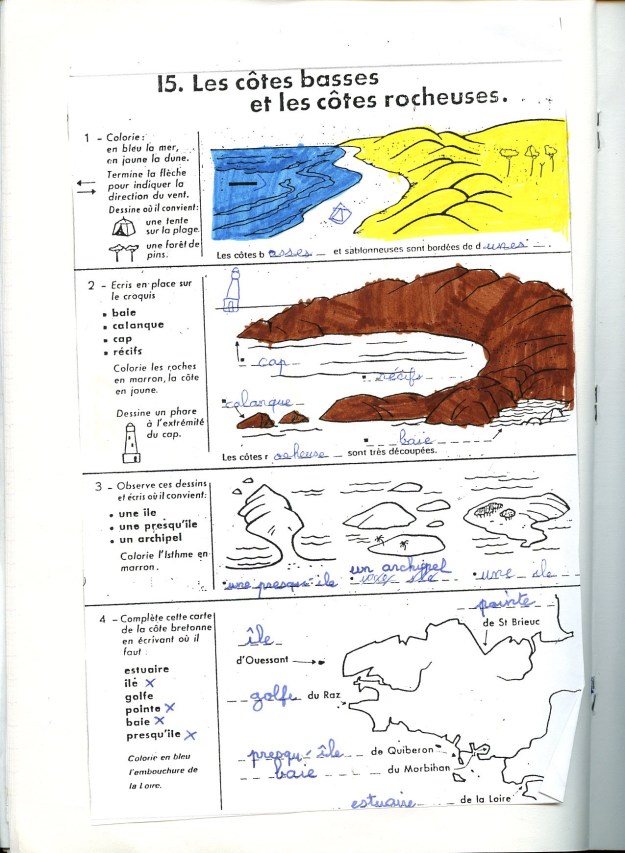 15. Les côtes basses
et les côtes rocheuses.
1 - Colorie :
en bleu la mer,
en jaune la dune.
Termine la flèche
pour indiquer la
direction du vent.
Dessine où il convient:
une tente
sur la plage.
une forêt de
pins.
Les côtes basses et sablonneuses sont bordées de dunes.
2 - Ecris en place sur
le croquis
baie
calanque
cap
récifs
Colorie les roches
en marron, la côte
en jaune.
Dessine un phare
à l'extrémité
du cap.
cap
récifs
calanque
baie
Les côtes rocheuse sont très découpées.
3 - Observe ces dessins
et écris où il convient:
une île
une presqu'île
un archipel
Colorie l'Isthme en
marron.
une presqu'île
un archipel
une île
4 - Complète cette carte
de la côte bretonne
en écrivant où il
faut :
estuaire
île x
golfe
pointe x
baie x
presqu'île x
Colorie en bleu
l'embouchure de
la Loire.
pointe
de St Brieuc
île
d'Ouessant
golfe du Raz
presqu'île de Quiberon
baie du Morbihan
estuaire de la Loire